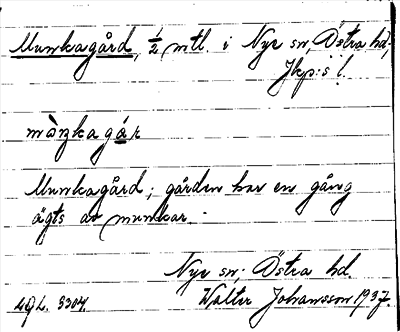 Munkagård, ½ mtl. i Nye sn, Östra hd,
Jkp:s l.
Munkagård; gården har en gång
ägts av munkar.
Nye sn; Östra hd.
Walter Johansson 1937.